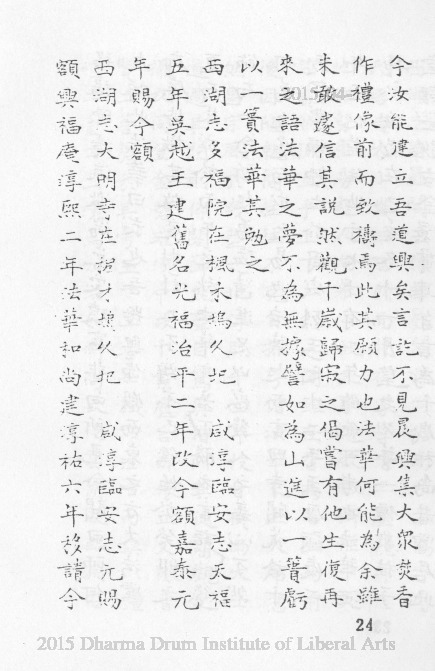 今汝能建立吾道興矣言訖不見晨興集大眾焚香
作禮像前而致禱焉此其願力也法華何能為余雖
未敢遽信其說然觀千歲歸寂之偈嘗有他生復再
來之語法華之夢不為無據譬如為山進以一簣虧
以一簣法華其勉之
西湖志多福院在楓木塢久圮 咸淳臨安志天福
五年吳越王建舊名光福治平二年改今額嘉泰元
年賜今額
西湖志大明寺在裙才塢久圮 咸淳臨安志元賜
額興福庵淳熙二年法華和尚建淳祐六年移請今
24
2015 Dharma Drum Institute of Liberal Arts